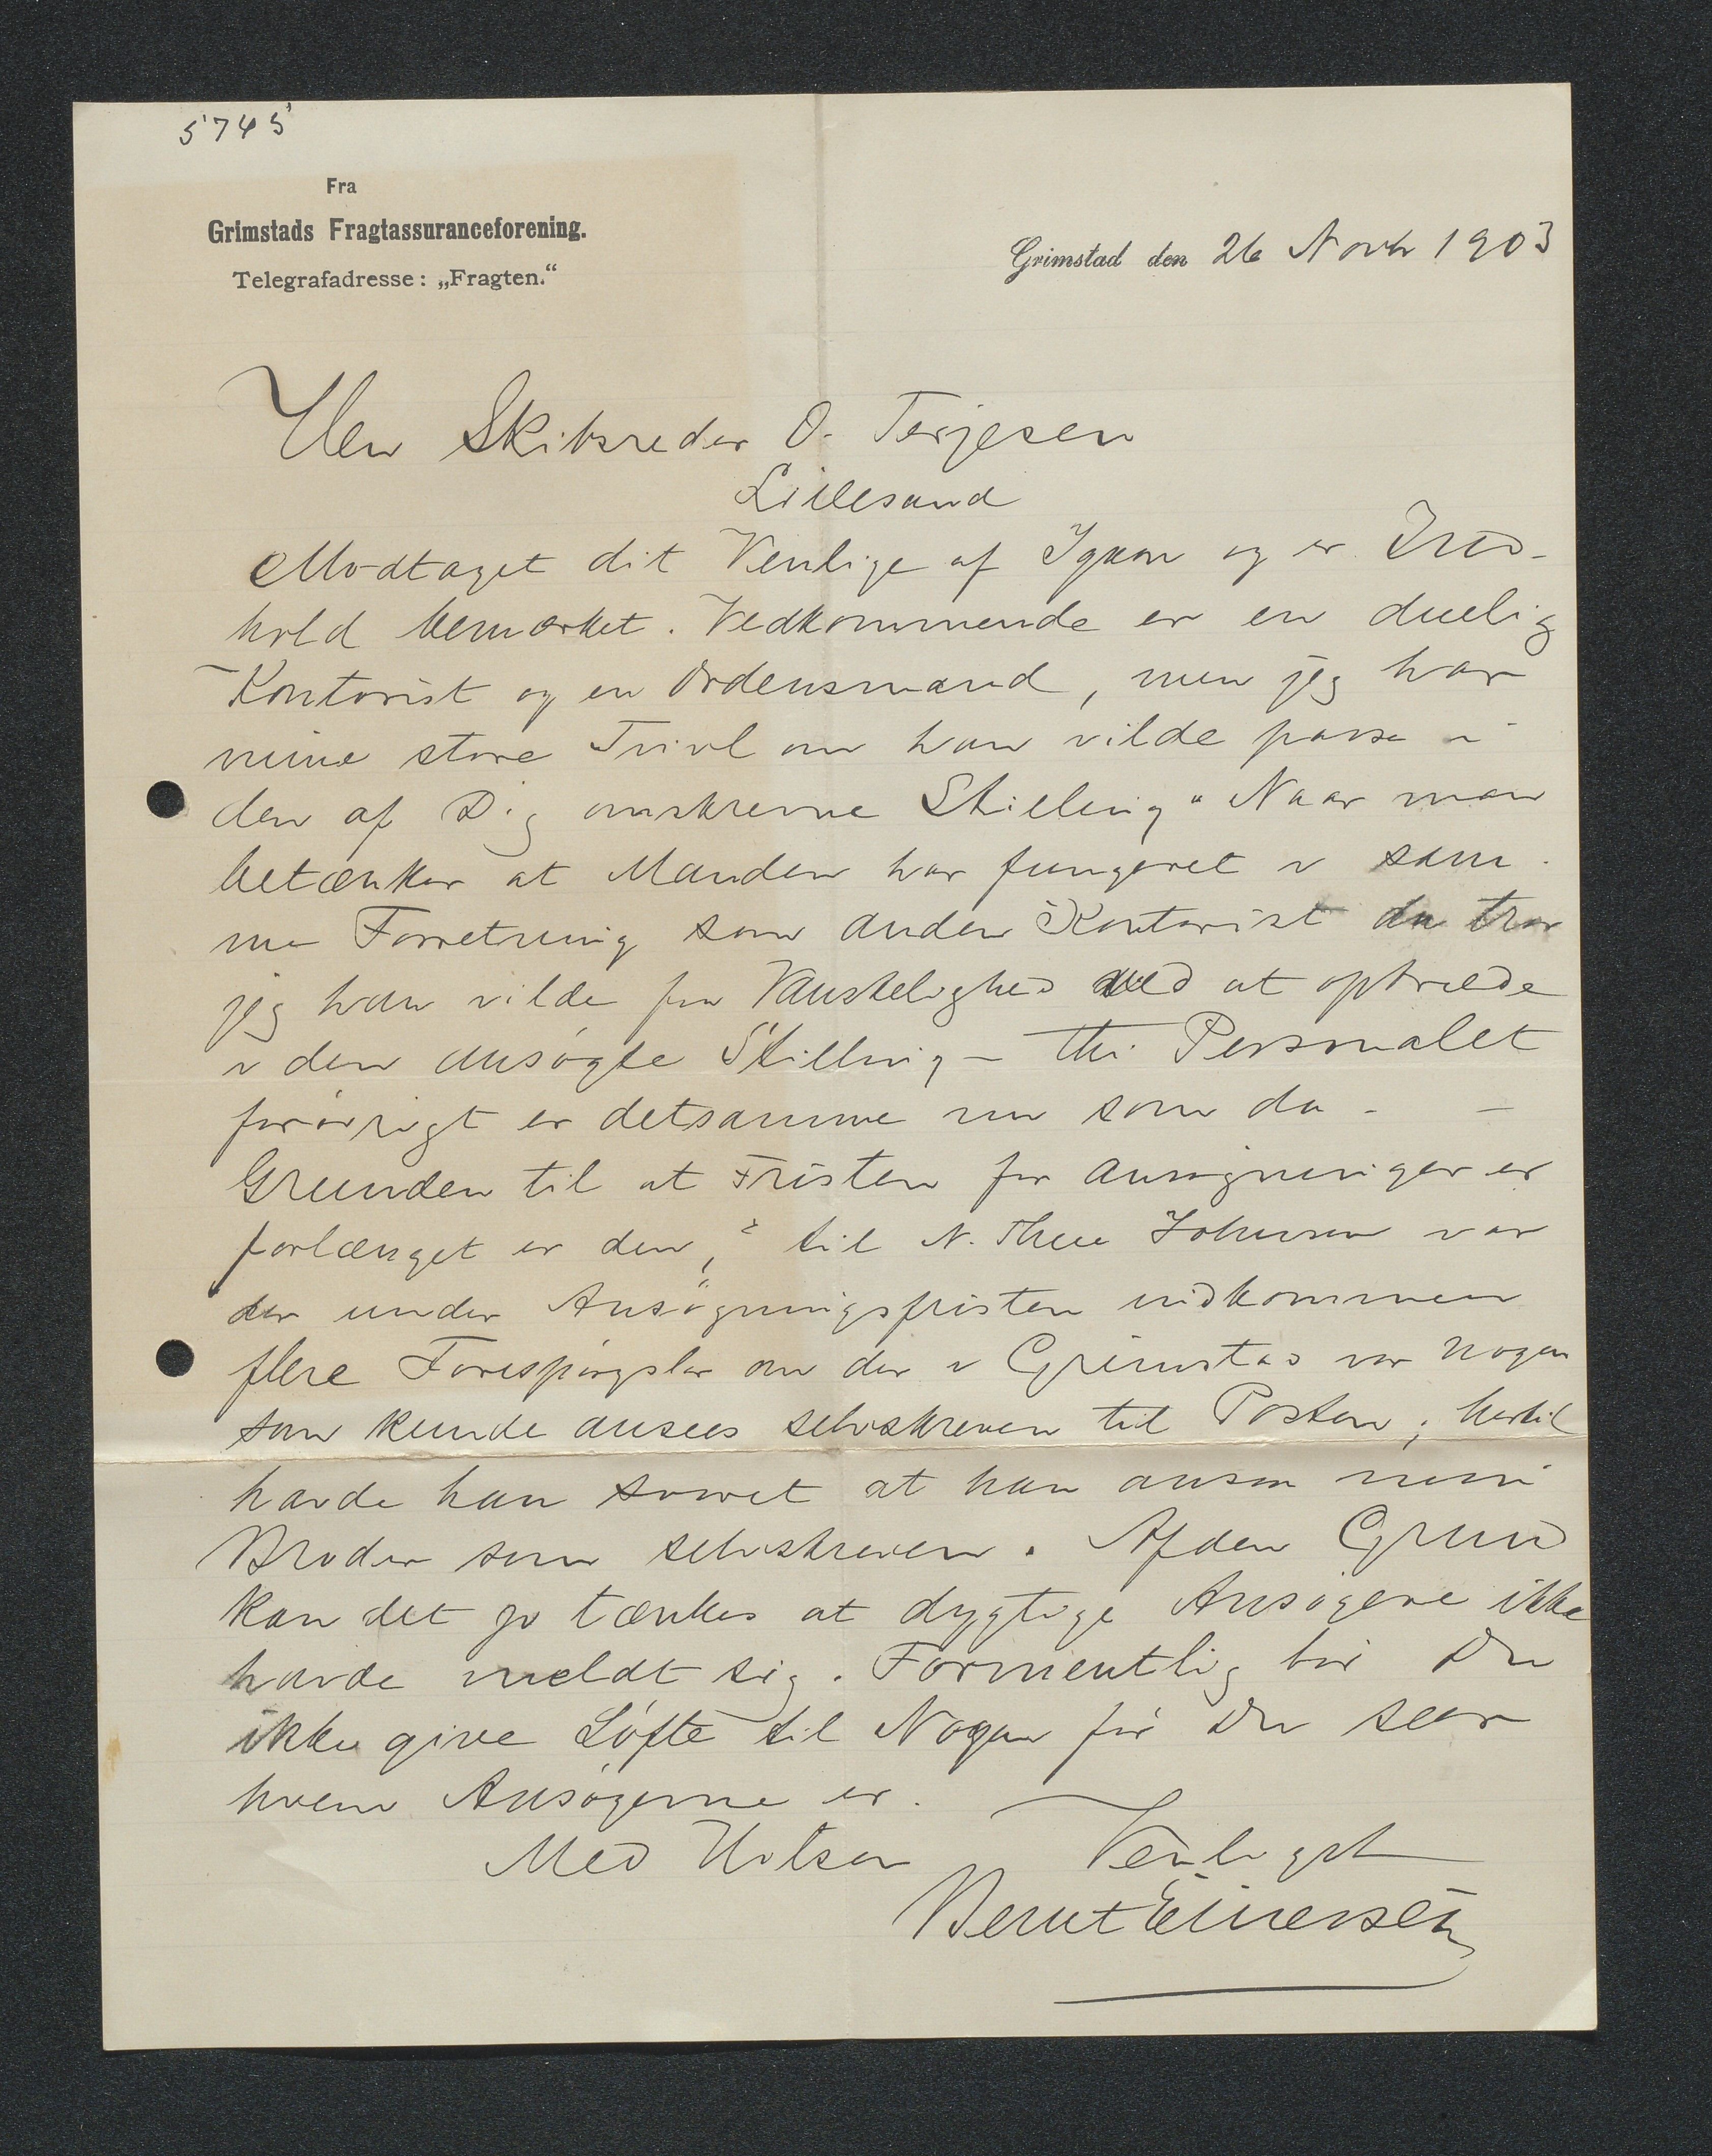 5745
Fra
Grimstads Fragtassuranceforening.
Telegrafadresse: „Fragten.“
Grimstad den 26 Novb 1903
Herr Skibsreder O. Terjesen
Lillesand
Modtaget dit Venlige af Igaar og er Ind-
hold bemærket. Vedkommende er en duelig
Kontorist og en Ordensmand, men jeg har
mine store Tvivl om han vilde passe i
den af Dig omskrevne Stilling" Naar man
betænker at Manden har fungeret i sam-
me Forretning som anden Kontorist da tror
jeg han vilde faa Vanskelighed ved at optræde
i den ansøgte Stilling - thi Personalet
forøvrigt er detsamme nu som da - -
Grunden til at Fristen for Ansøgninger er
forlænget er den, til N. Thue Johnsen var
der under Ansøgningsfristen indkommen
flere Forespørgsler om der i Grimstad var nogen
som kunde ansees selvskreven til Posten; hertil
havde han svaret at han ansaa min
Broder som selvskreven. Af den Grund
kan det jo tænkes at dygtige Ansøgere ikke
havde meldt sig. Formentlig bør Du
ikke give Løfte til Nogen før Du seer
hvem Ansøgerne er.
Med Hilsen Venligst
Bernt Einersen